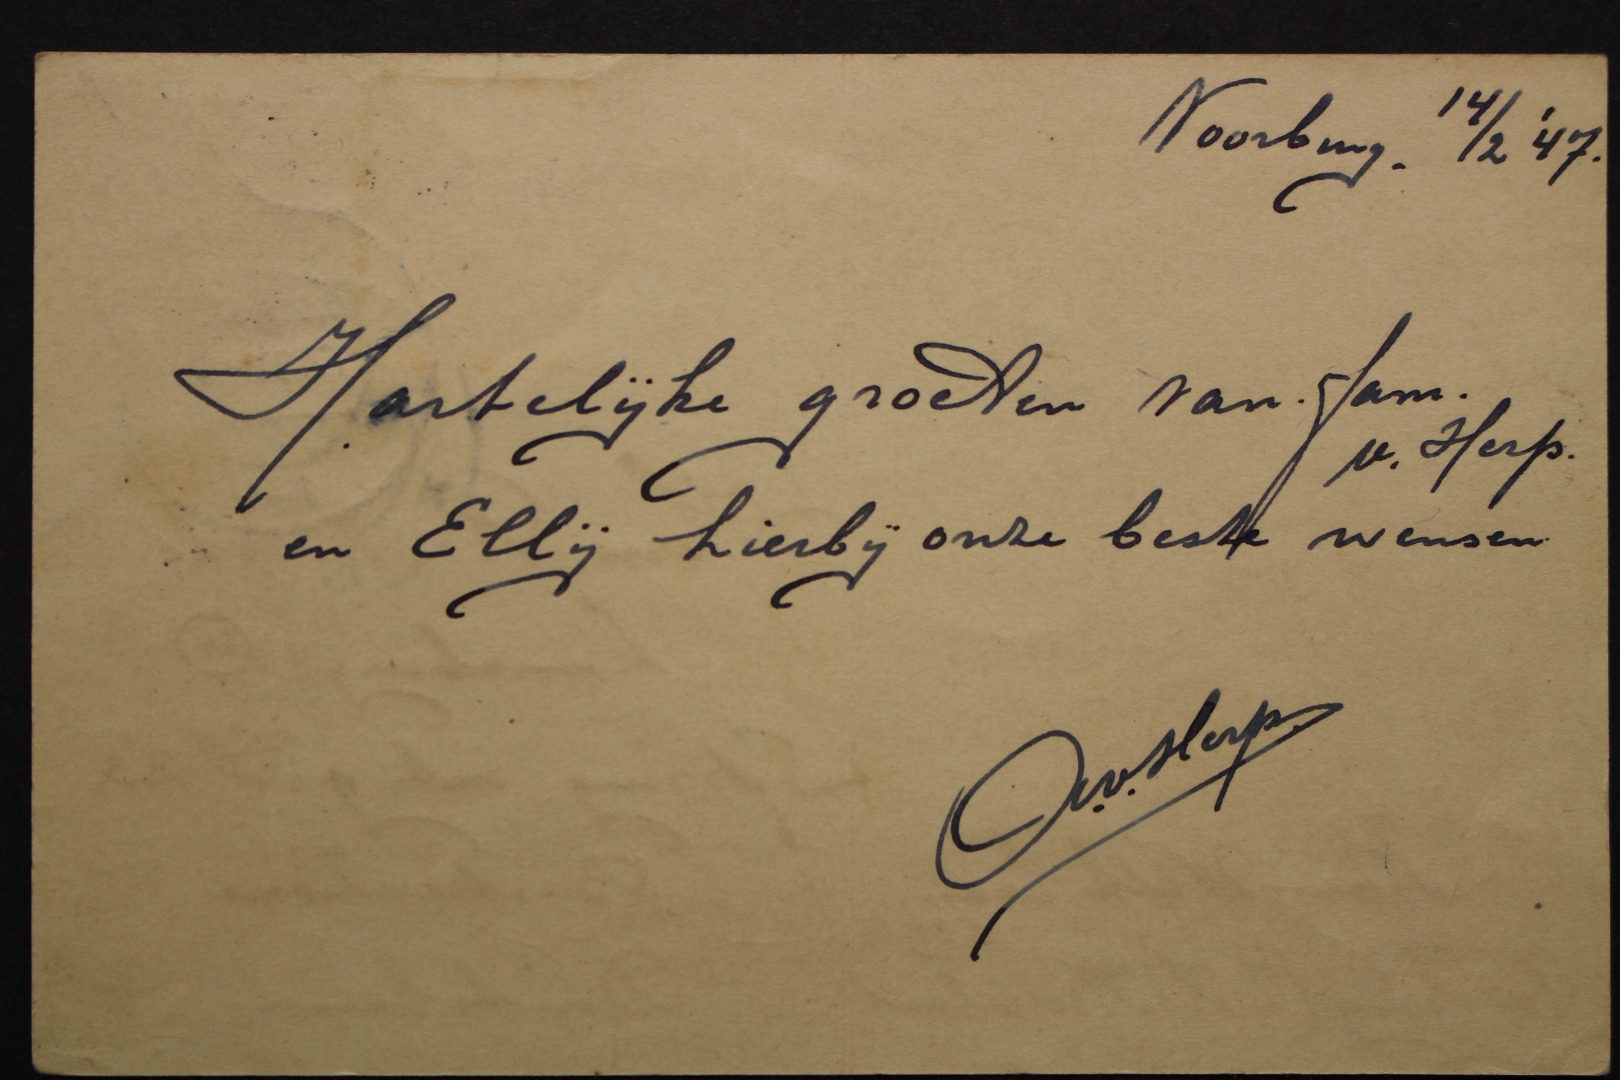 Voorburg. 14/2 '47.
Hartelijke groeten van. fam.
v. Herp.
en Ellij hierbij onze beste wensen
v. Herp.